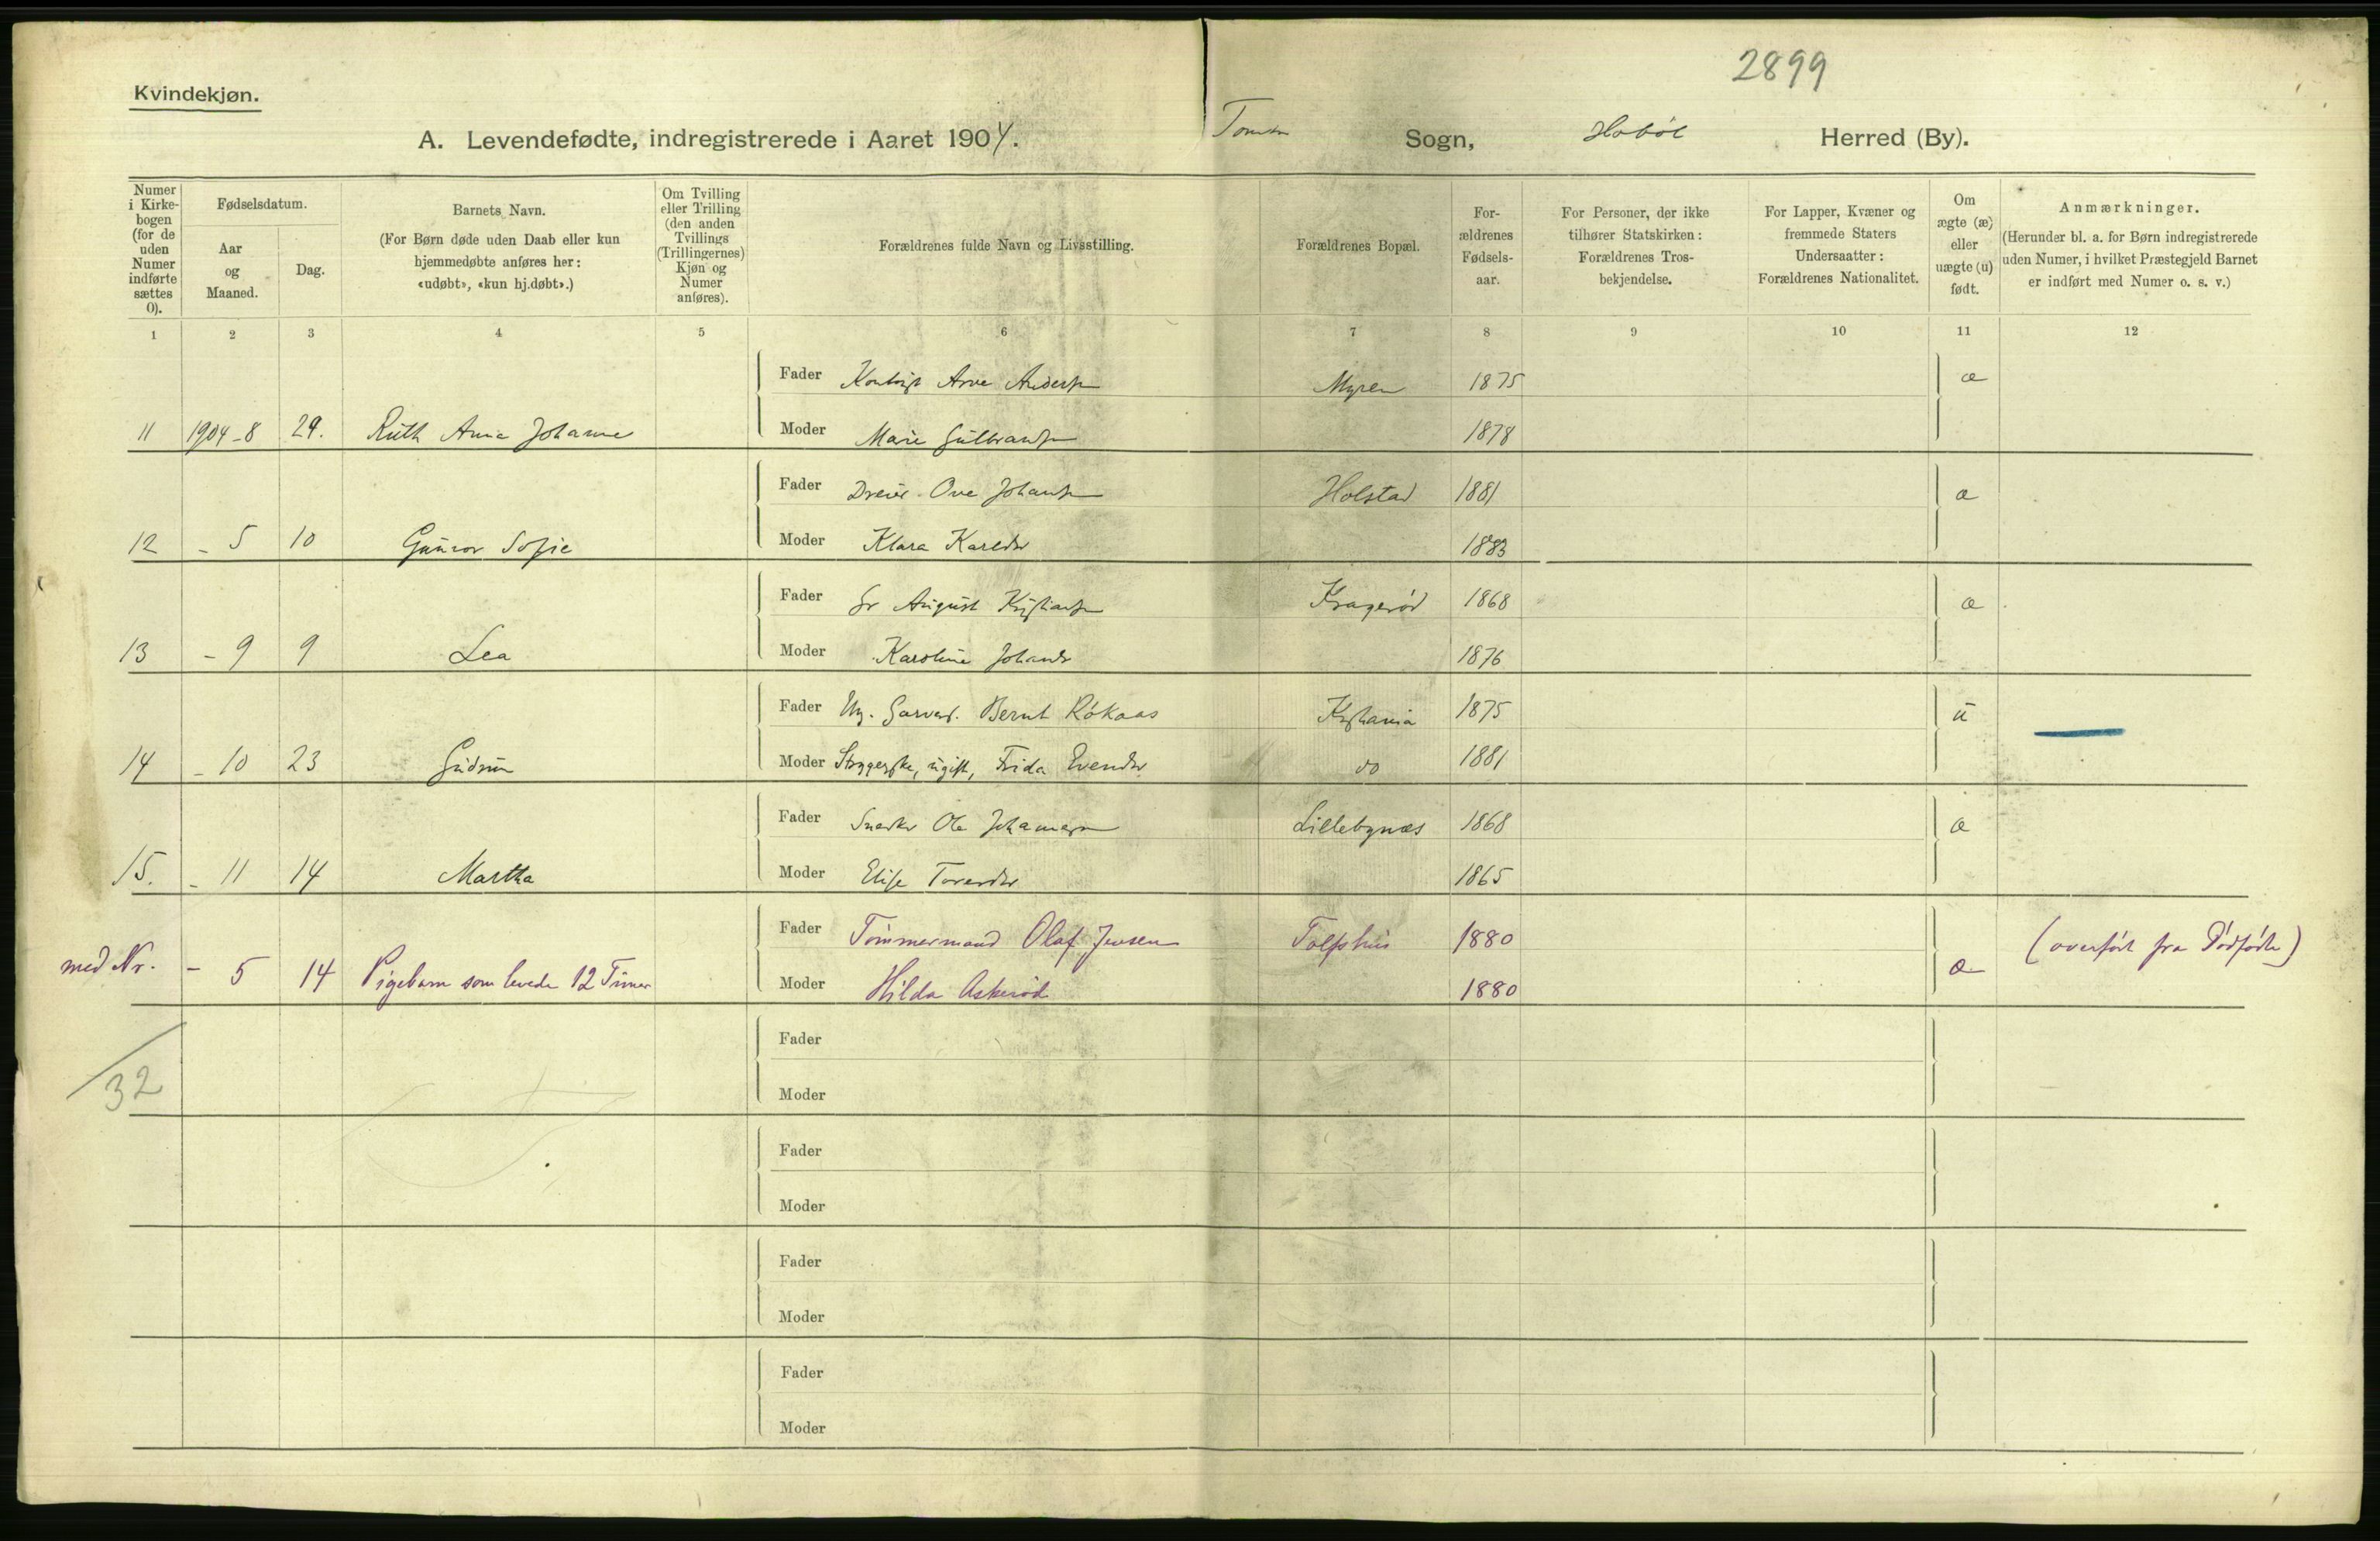 2899
Kvindekjøn.
A. Levendefødte, indregistrerede i Aaret 1904. Sogn, Hobøl Herred (By).
Numer i Kirkebogen (for de uden Numer indførte sættes 0).
Fødselsdatum.
Aar og Maaned.
Dag.
Barnets Navn.
(For Børn døde uden Daab eller kun hjemmedøbte anføres her: «udøbt», «kun hj.døbt».)
Om Tvilling eller Trilling (den anden Tvillings (Trillingernes) Kjøn og Numer anføres).
Forældrenes fulde Navn og Livsstilling.
Forældrenes Bopæl.
Forældrenes Fødselsaar.
For Personer, der ikke tilhører Statskirken: Forældrenes Trosbekjendelse.
For Lapper, Kvæner og fremmede Staters Undersaatter: Forældrenes Nationalitet.
Om ægte (æ) eller uægte (u) født.
Anmærkninger.
(Herunder bl. a. for Børn indregistrerede uden Numer, i hvilket Præstegjeld Barnet er indført med Numer o. s. v.)
1 2 3 4 5 6 7 8 9 10 11 12
Fader Arve Anders Myren 1875 æ
11 1904-8 29. Ruth Anna Johanne Moder Marie Gulbrands 1878
Fader Ove Johans Holstad 1881 æ
12 - 5 10 Gunvor Sofie Moder Klara Karlsdr 1883
Fader Gr August Kristians Kragerød 1868 æ
13 - 9 9 Lea Moder Karoline Johansdr 1876
Fader Ug. Garver. Bernt Rökaas Kristiania 1875 u
14 - 10 23 Gudrun Moder Strygerske, ugift, Frida Evensdr do 1881
Fader Snedker Ole Johannesen Lillebynæs 1868 æ
15. - 11 14 Martha Moder Elise Toresdr 1865
Fader Tømmermand Olaf Jensen Tolfshus 1880 (overført fra Dødfødte)
med Nr. - 5 14 Pigebarn som levede 12 Timer Moder Hilda Askerød 1880 æ
Fader
32 Moder
Fader
Moder
Fader
Moder
Fader
Moder